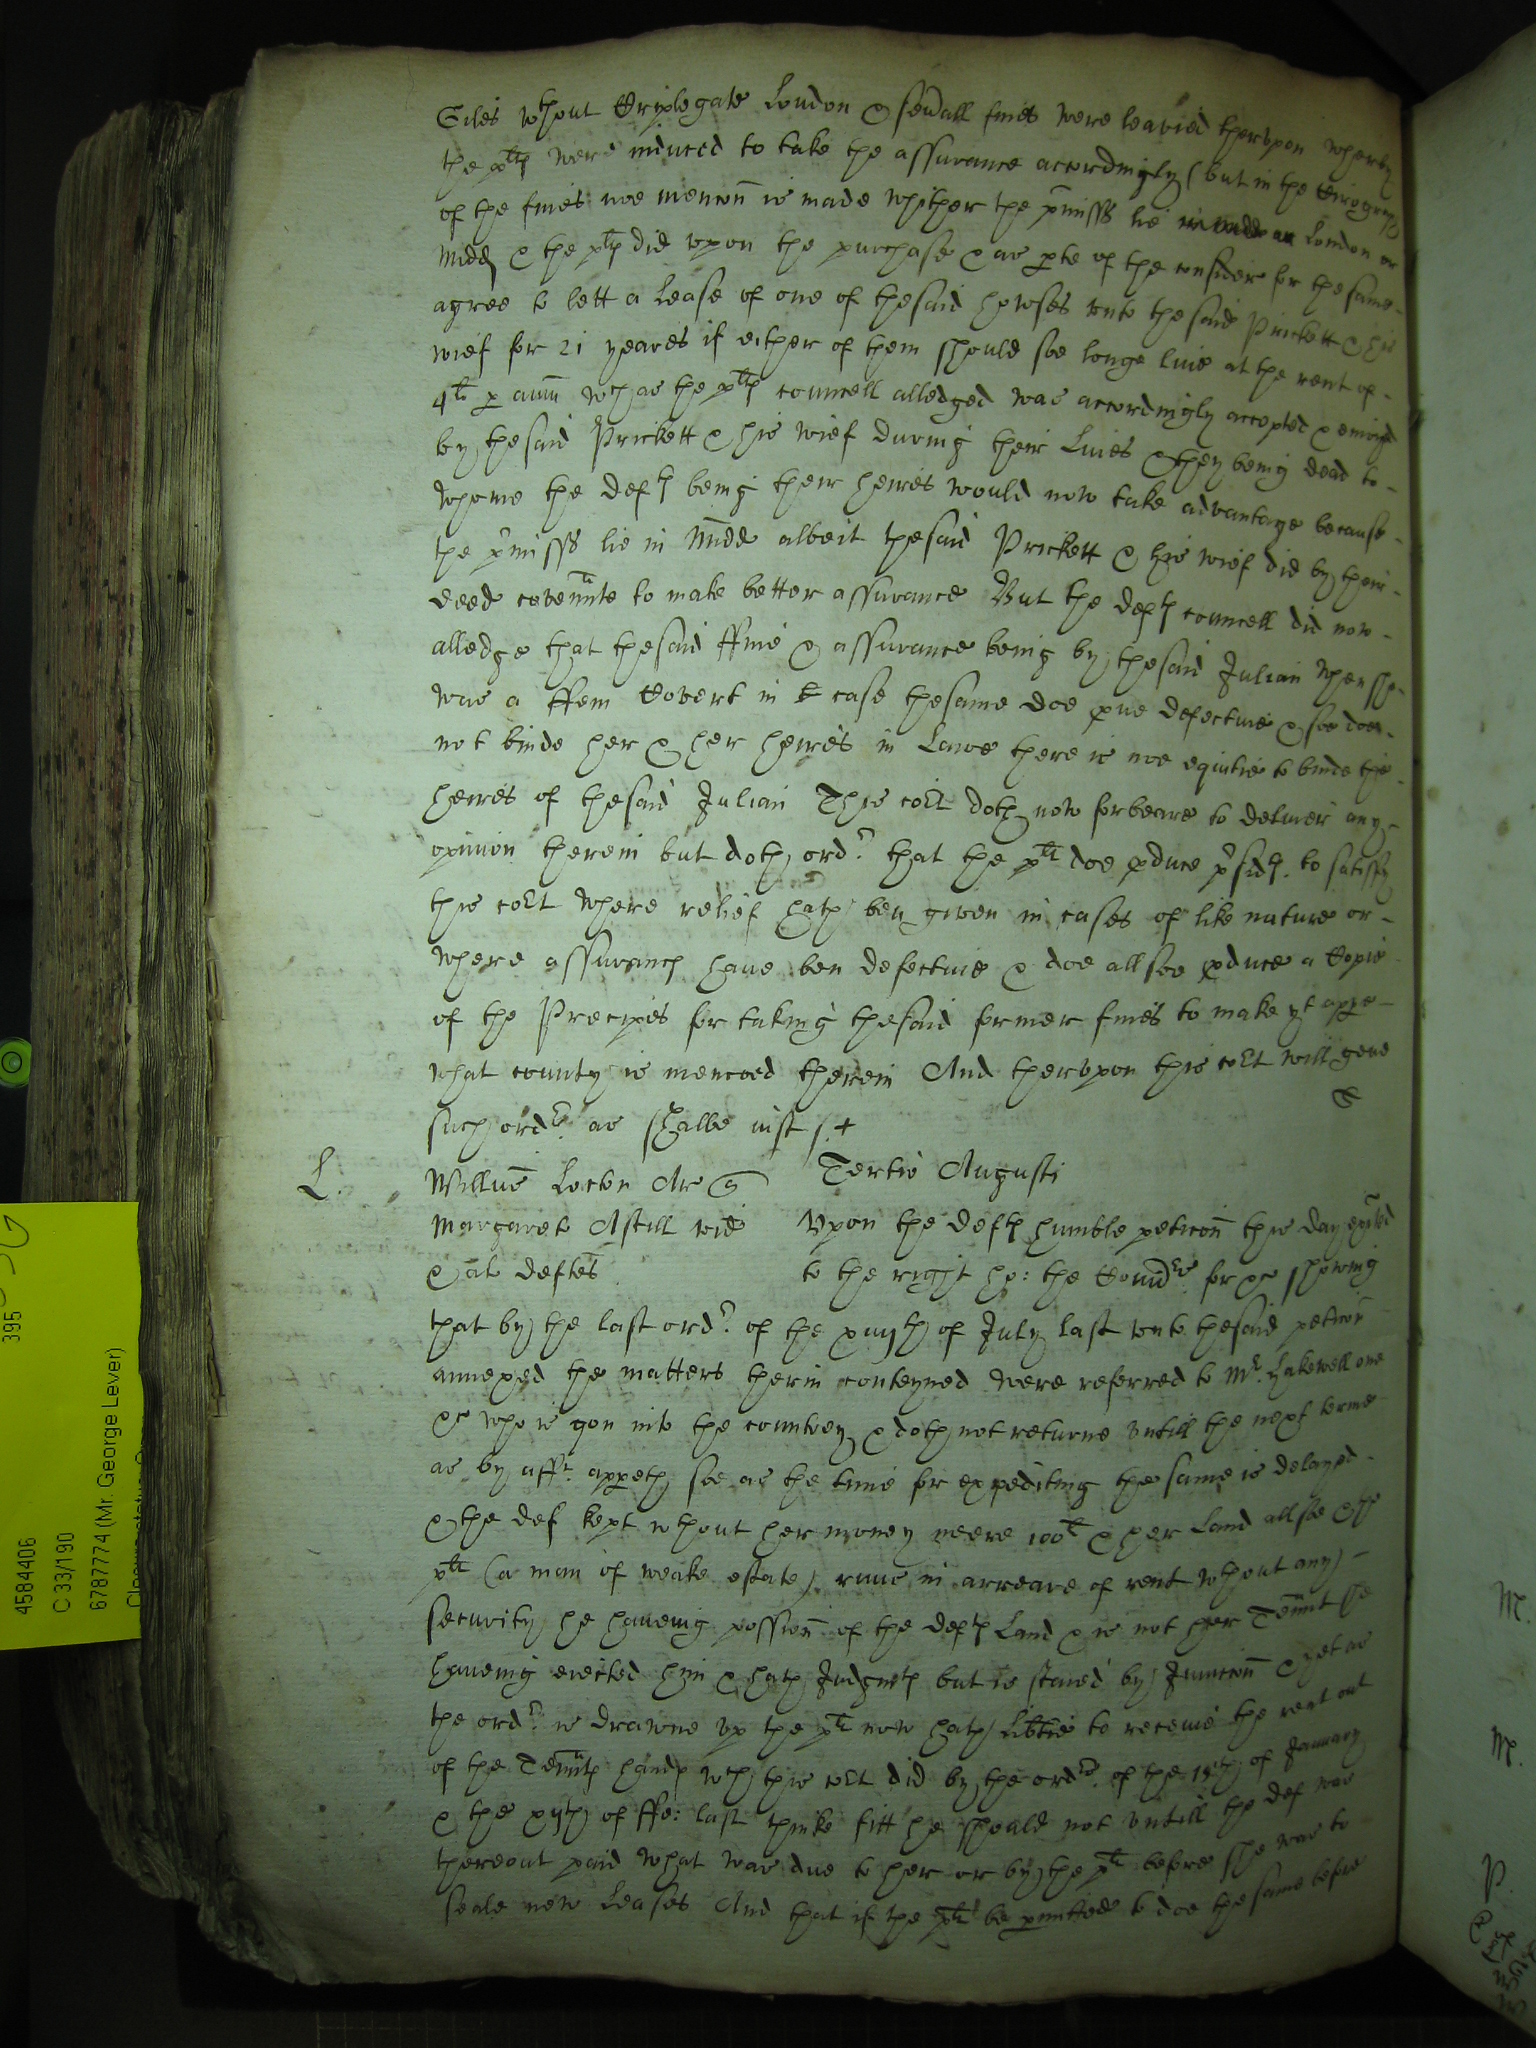 Giles wthout Criplegate London & sevall fines were leavied therupon wherby
the plts were induced to take the assurance accordingly (but in the Cirogra
of the fines noe mencon is made whither the pmisss lie London or
Midd & the plts did upon the purchase & as pte of the consider for the same
agree to lett a Lease of one of the said howses unto the said Prickett & his
wief for 21 yeares if either of them should soe longe live at the rent of
4li p ann wch as the plts councell alledged was accordingly accepted & enioyed
by the said Prickett & his wief during their Lives & they being dead to
whome the defts being their heires would now take advantage because
the pmisss lie in Midd albeit the said Prickett & his wief did by their
deed covennte to make better assurance But the defts councell did now
alledge that the said ffine & assurance being by the said Julian when she
was a ffem Covert in case the same doe pve defective & soe does
not binde her & her heires in Lawe there is noe equitie to binde the
heires of the said Julian This cort doth now forbeare to deliver any
opinion therein but doth ordr that the plt doe pduce psidts to satisfy
this cort where relief hath ben given in cases of like nature or
where assurancs have ben defective & doe allsoe pduce a Copie
of the Precipes for taking the said former fines to make yt appe
what county is menconed therein And therupon this cort will geve
such ordr as shalbe iust /. +
L.
Willus Locton Ar Tertio Augusti
Margareta Astill wid Upon the defts humble peticon this day exhited
& al deftes to the right ho: the Comdrs for &c showing
that by the last ordr of the xviijth of July last unto the said peticon
annexed the matters therin conteyned were referred to Mr. Hakewell one
&c who is gon into the countrey & doth not returne untill the next terme
as by afft appeth soe as the time for expediting the same is delayed
& the def kept wthout her money neere 100li & her Land allsoe & the
plt (a man of weake estate) runs in arreare of rent wthout any
security he haveing possion of the defts Land & is not her Tennt she
haveing eiected him & hath Judgmt but is staied by Iniuncon & yet as
the ordr is drawne up the plt now hath Libtie to receive the rent out
of the Tennts hands wch this cort did by the ordrs of the 19th of January
& the xijth of ffe: last thinke fitt he should not untill the def was
thereout paid what was due to her or by the plt before she was to
seale new Leases And that if the plt be pmitted to doe the same before
395
4584406
C 33/190
6787774 (Mr. George Lever)
M.
M.
P.